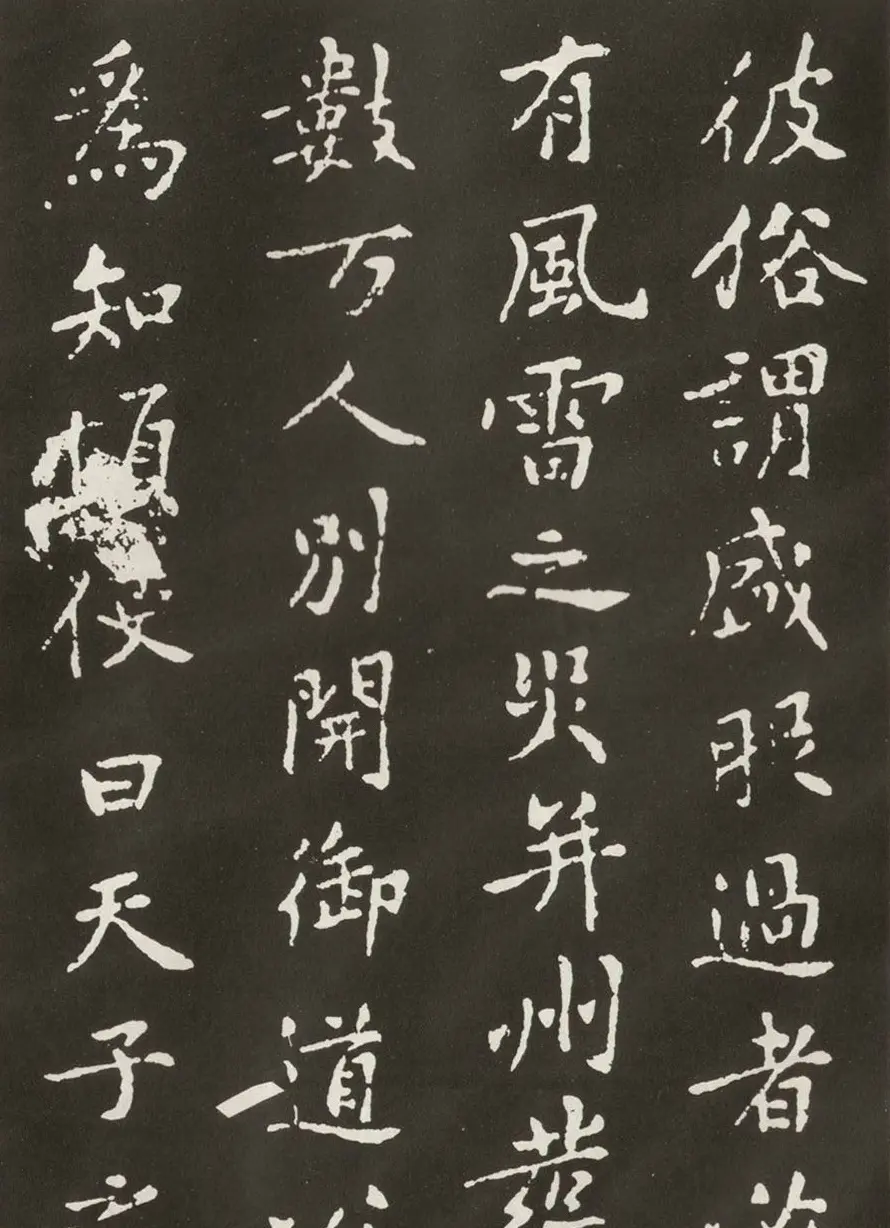 彼俗謂盛服過者
有風雷之災并州發
數万人別開御道
爲知頓使曰天子之